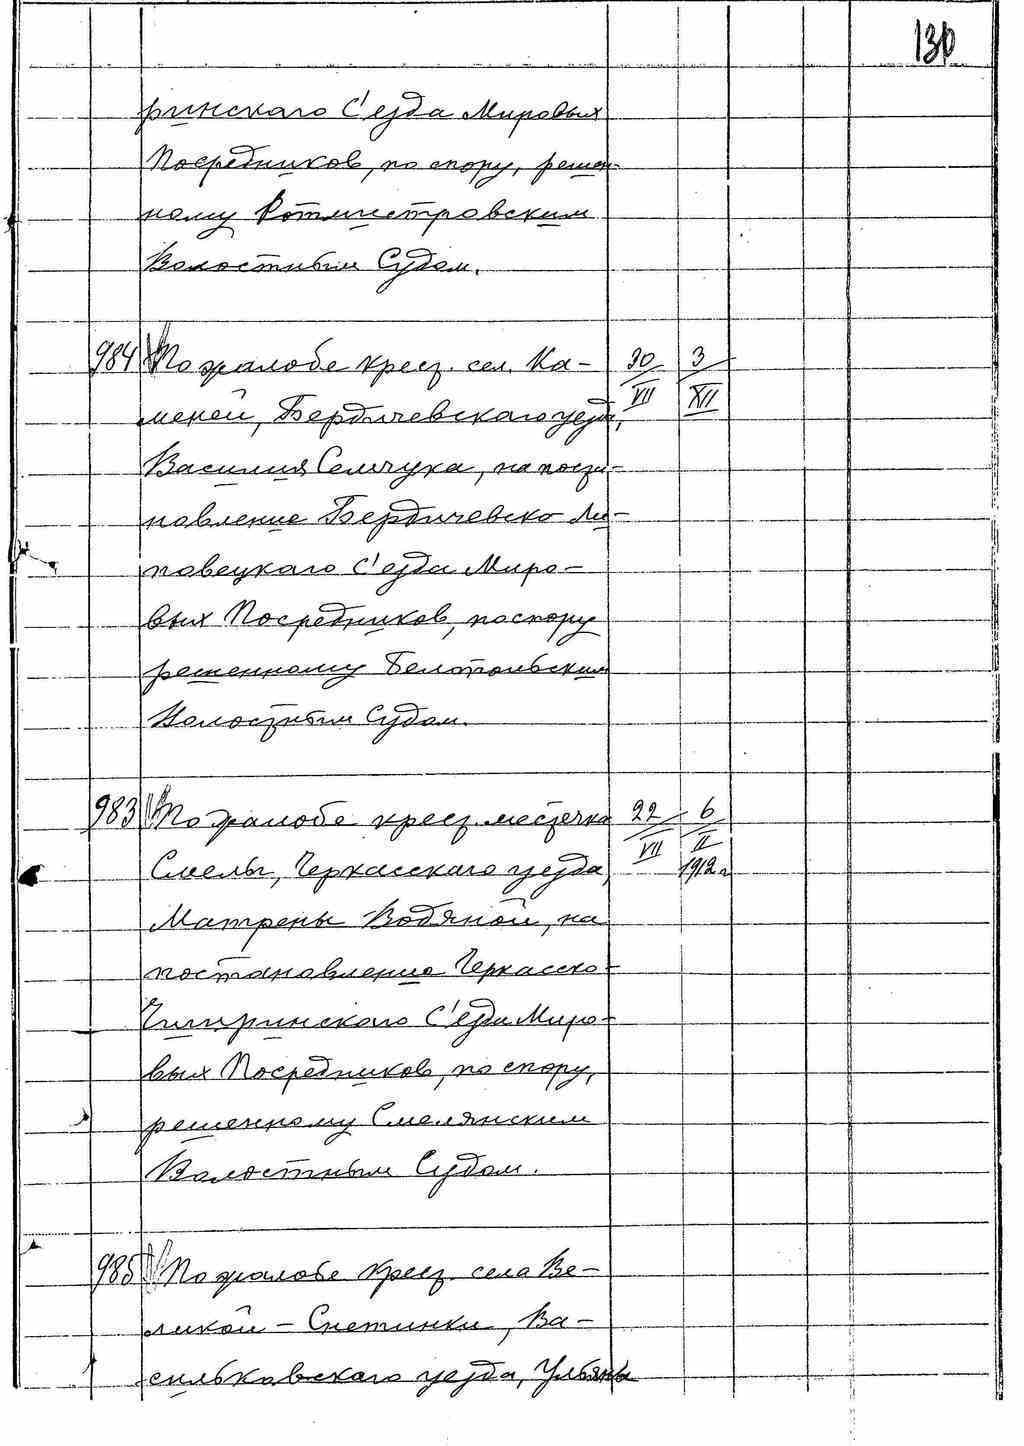 130
ринскаго С'езда Мировых
Посредников, по спору, решен-
ному Ротмистровским
Волостным Судом.
984 По жалобе крест. сел. Ка- 30/VII 3/XII
меней, Бердичевскаго уезда,
Василия Семчука, на поста-
новление Бердичевско-Ли-
повецкаго С'езда Миро-
вых Посредников, по спору
решенному Белопольским
Волостным Судом.
983 По жалобе крест. местечка 22/VII 6/II
Смелы, Черкасскаго уезда, 1912 г
Матрены Водяной, на
постановление Черкасско-
Чигиринскаго С'езда Миро-
вых Посредников, по спору,
решенному Смелянским
Волостным Судом.
985 По жалобе крест. села Ве-
ликой - Снетинки, Ва-
сильковскаго уезда, Ульяны